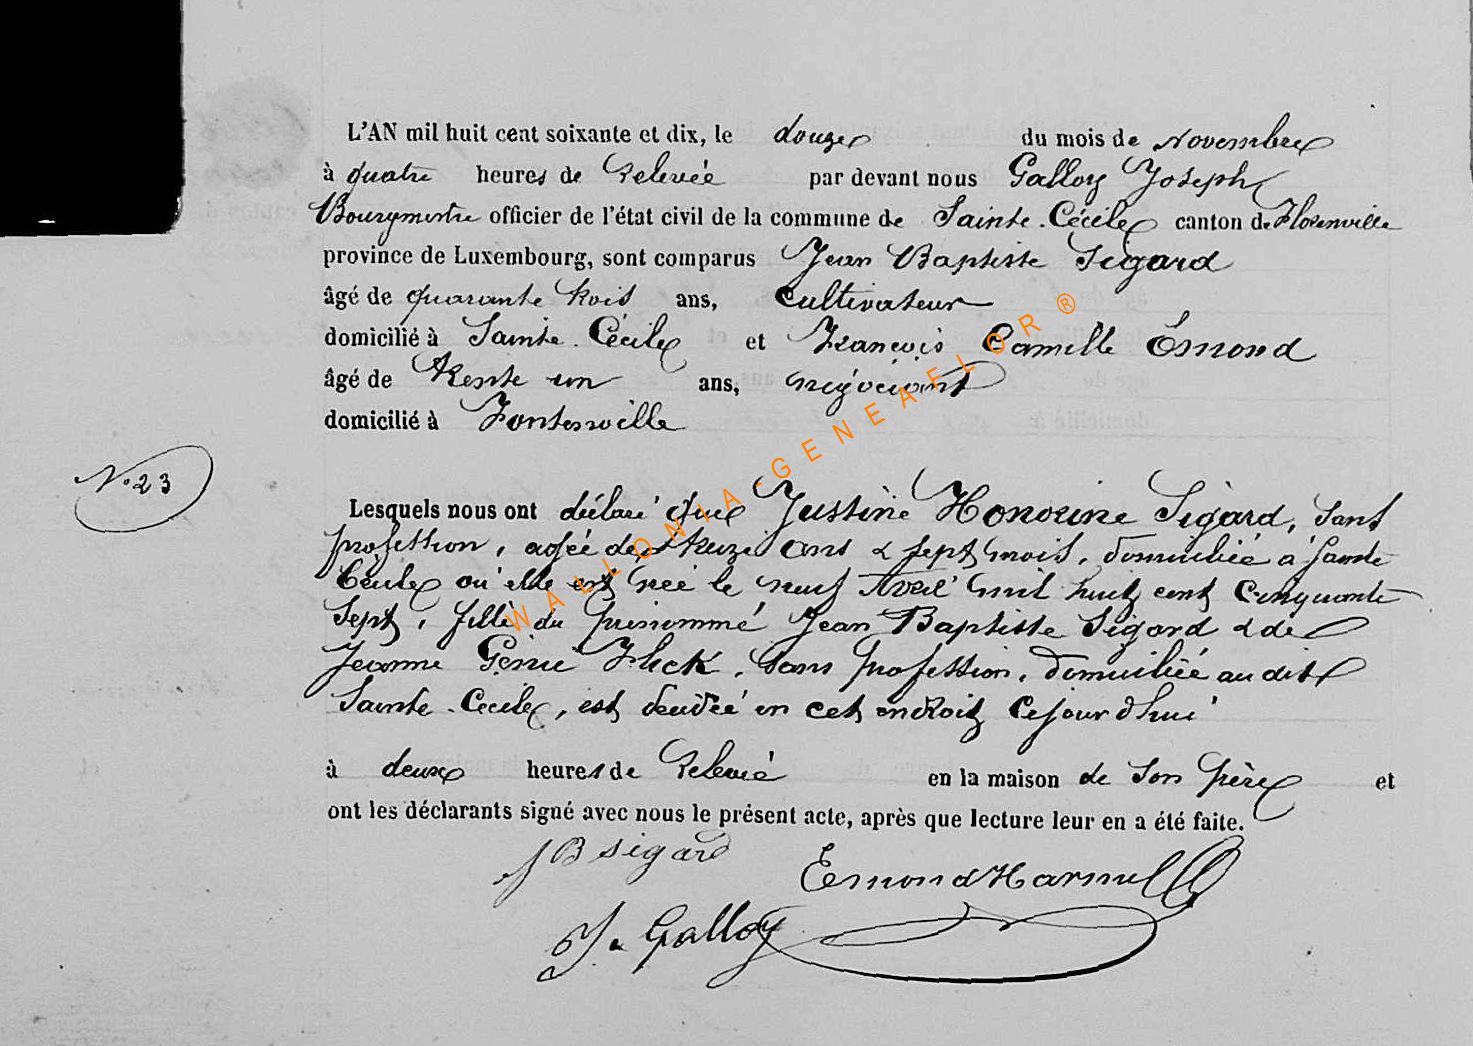 L'AN mil huit cent soixante et dix, le douze du mois de Novembre
à quatre heures de Relevée par devant nous Galloy Joseph
Bourgmestre officier de l'état civil de la commune de Sainte-Cécile canton de Florenville
province de Luxembourg, sont comparus Jean Baptiste Sigard
âgé de quarante trois ans, cultivateur
domicilié à Sainte-Cécile et François Camille Émond
âgé de trente un ans, négociant
domicilié à Fontenoille
N° 23
Lesquels nous ont déclaré que Justine Honorine Sigard, sans
profession, agée de treize ans & sept mois, domiciliée à Sainte
Cécile où elle est née le neuf Avril mil huit cent cinquante
sept, fille du prénommé Jean Baptiste Sigard & de
Jeanne Flick, sans profession, domiciliée au dit
Sainte-Cecile, est décédée en cet endroit cejourd'hui
à deux heures de Relevée en la maison de son père et
ont les déclarants signé avec nous le présent acte, après que lecture leur en a été faite.
JB Sigard
Emond Harmel
J. Galloy
WALLONIA-GENEAFLOR ®